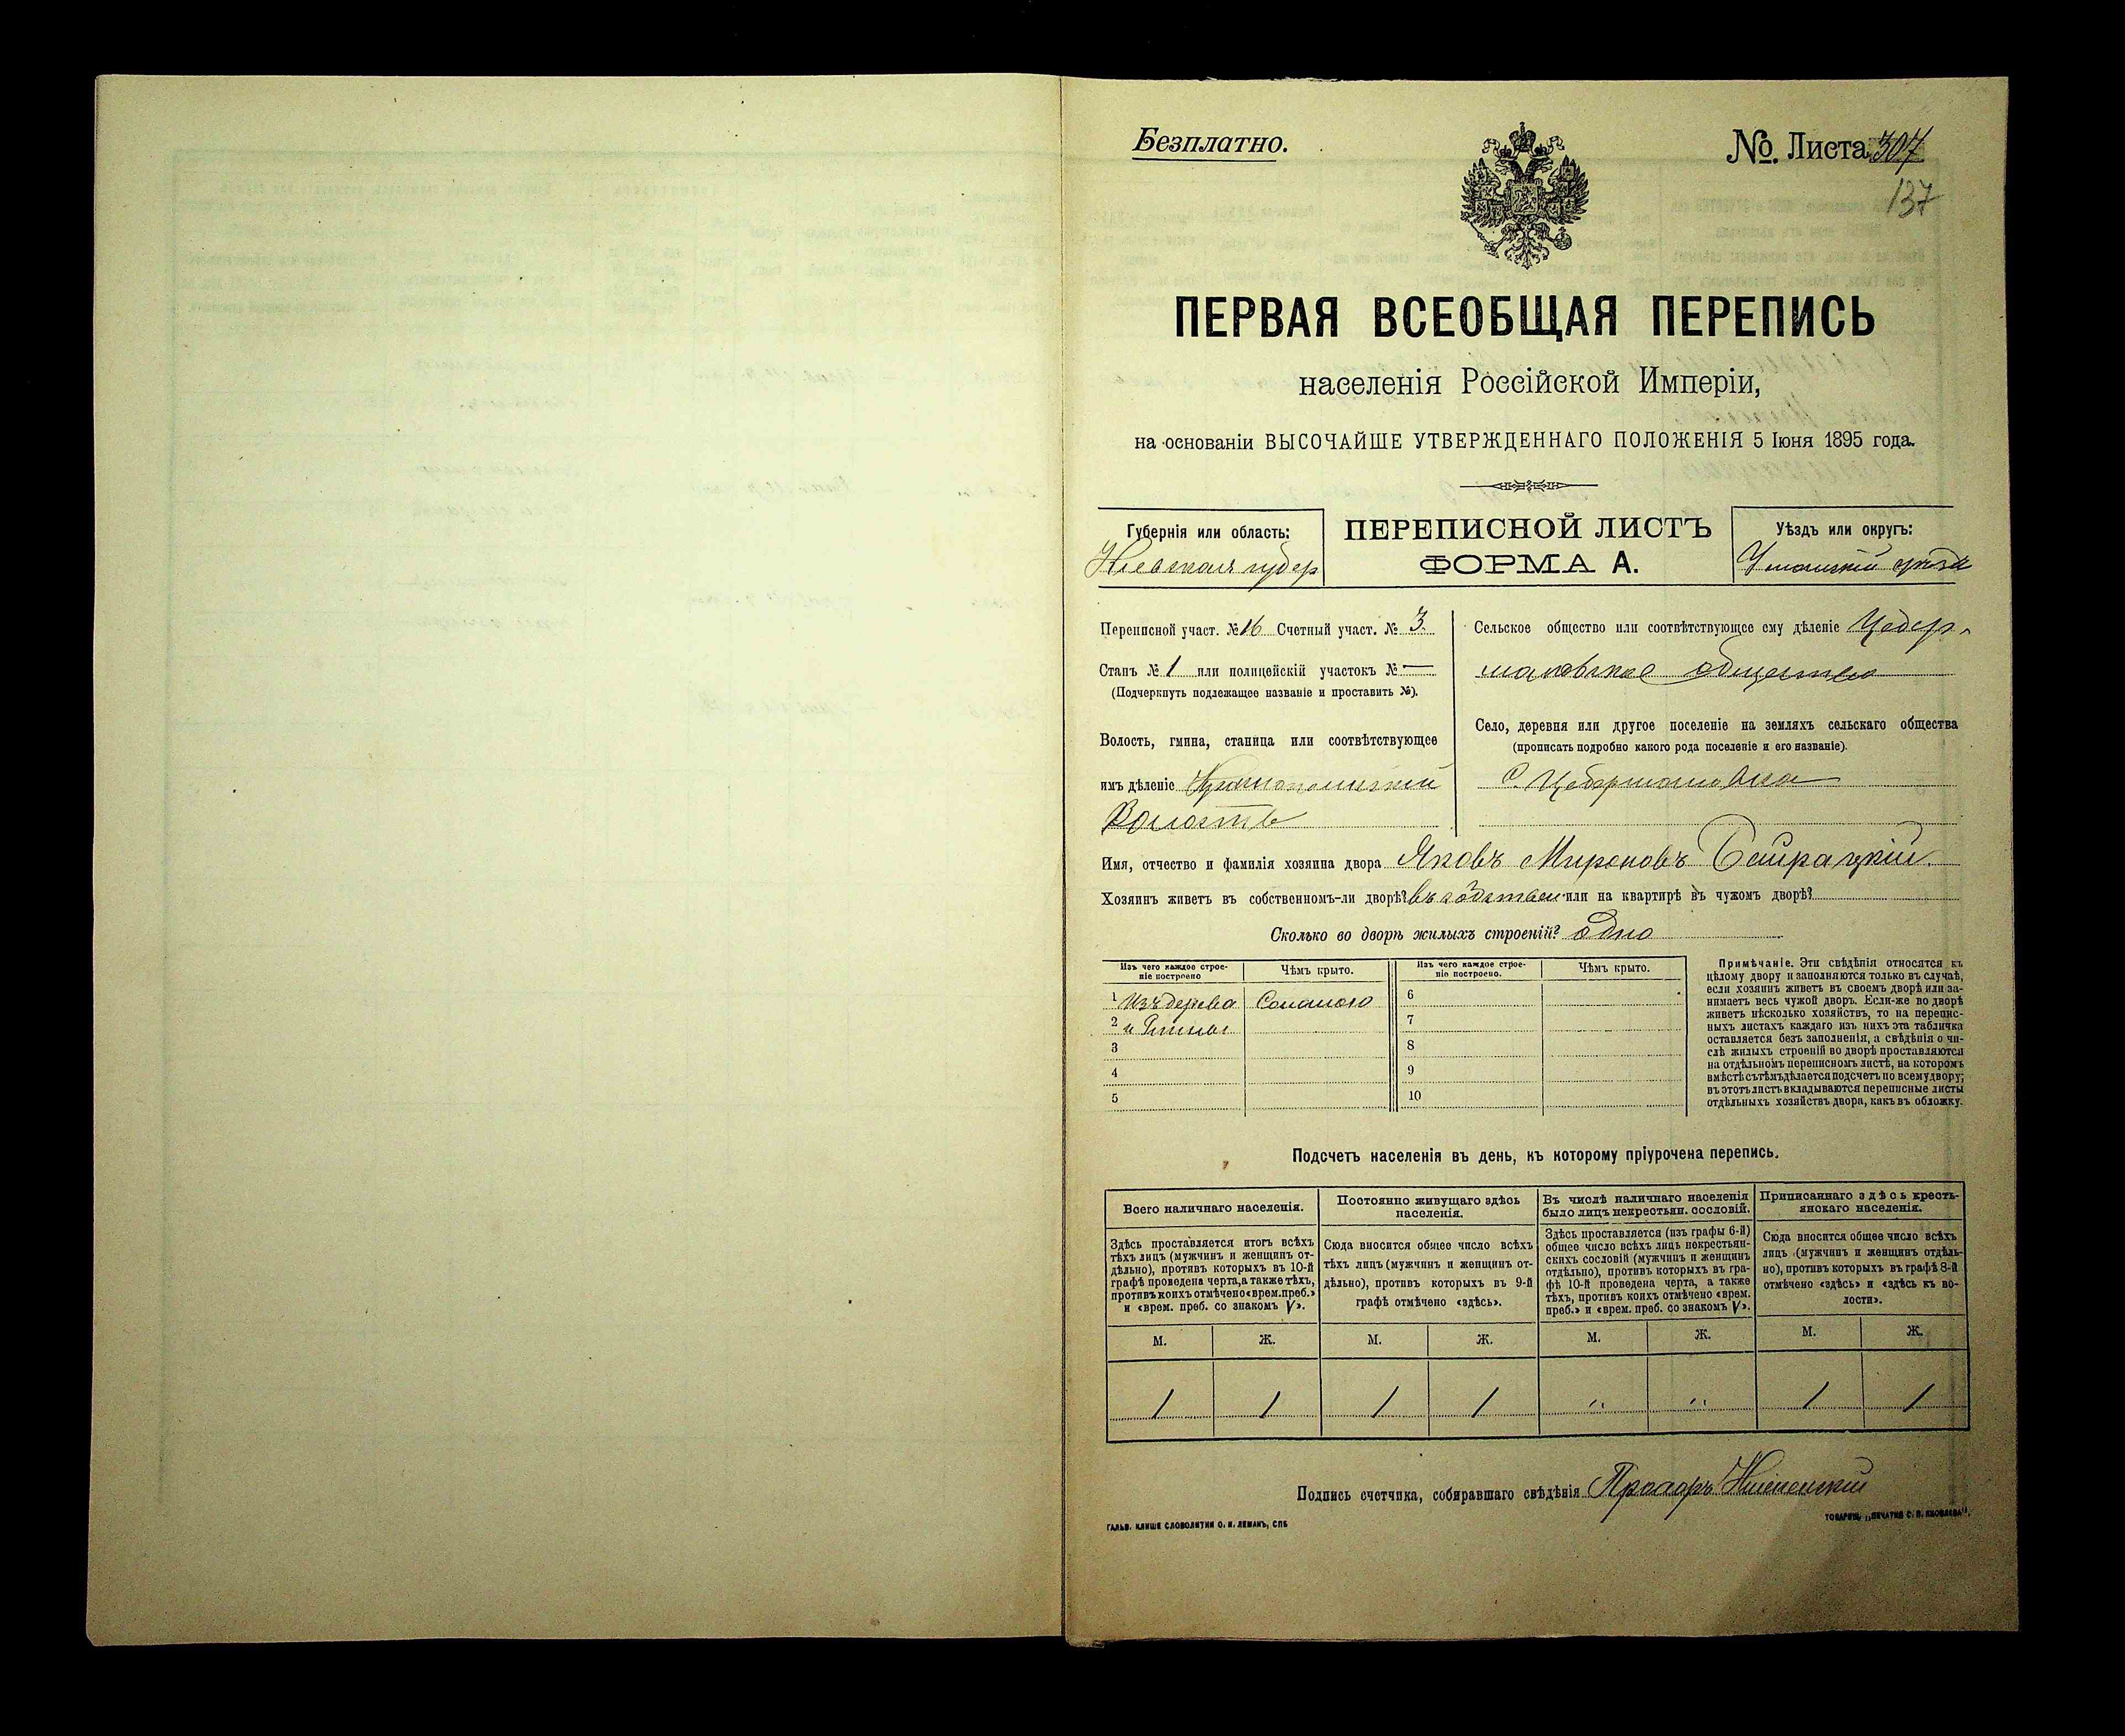 Безплатно.
№. Листа 307
137
ПЕРВАЯ ВСЕОБЩАЯ ПЕРЕПИСЬ
населенія Россійской Имперіи,
на основаніи ВЫСОЧАЙШЕ УТВЕРЖДЕННАГО ПОЛОЖЕНІЯ 5 Іюня 1895 года.
Губернія или область:
Кіевская губер
ПЕРЕПИСНОЙ ЛИСТЪ
ФОРМА А.
Уѣздъ или округъ:
Уманскій уѣздъ
Переписной участ. № 16 Счетный участ. № 3.
Станъ № 1 или полицейскій участокъ № —
(Подчеркнуть подлежащее названіе и проставить №).
Волость, гмина, станица или соотвѣтствующее
имъ дѣленіе
Волость
Сельское общество или соотвѣтствующее ему дѣленіе Цебер-
мановское общество
Село, деревня или другое поселеніе на земляхъ сельскаго общества
(прописать подробно какого рода поселеніе и его названіе).
С. Цебермановка
Имя, отчество и фамилія хозяина двора Яковъ Мироновъ Байрацкій.
Хозяинъ живетъ въ собственномъ-ли дворѣ? въ собствен или на квартирѣ въ чужомъ дворѣ?
Сколько во дворѣ жилыхъ строеній? одно
Изъ чего каждое строе-
ніе построено
Чѣмъ крыто.
Изъ чего каждое строе-
ніе построено.
Чѣмъ крыто.
1 Изъ дерева Соломою
2 и глины
3
4
5
6
7
8
9
10
Примѣчаніе. Эти свѣдѣнія относятся къ
цѣлому двору и заполняются только въ случаѣ,
если хозяинъ живетъ въ своемъ дворѣ или за-
нимаетъ весь чужой дворъ. Если-же во дворѣ
живетъ нѣсколько хозяйствъ, то на перепис-
ныхъ листахъ каждаго изъ нихъ эта табличка
оставляется безъ заполненія, а свѣдѣнія о чи-
слѣ жилыхъ строеній во дворѣ проставляются
на отдѣльномъ переписномъ листѣ, на которомъ
вмѣстѣ съ тѣмъ дѣлается подсчетъ по всему двору;
въ этотъ листъ вкладываются переписные листы
отдѣльныхъ хозяйствъ двора, какъ въ обложку.
Подсчетъ населенія въ день, къ которому пріурочена перепись.
Всего наличнаго населенія.
Здѣсь проставляется итогъ всѣхъ
тѣхъ лицъ (мужчинъ и женщинъ от-
дѣльно), противъ которыхъ въ 10-й
графѣ проведена черта, а также тѣхъ,
противъ коихъ отмѣчено «врем. преб.»
и «врем. преб. со знакомъ V».
Постоянно живущаго здѣсь
населенія.
Сюда вносится общее число всѣхъ
тѣхъ лицъ (мужчинъ и женщинъ от-
дѣльно), противъ которыхъ въ 9-й
графѣ отмѣчено «здѣсь».
Въ числѣ наличнаго населенія
было лицъ некрестьян. сословій.
Здѣсь проставляется (изъ графы 6-й)
общее число всѣхъ лицъ некрестьян-
скихъ сословій (мужчинъ и женщинъ
отдѣльно), противъ которыхъ въ гра-
фѣ 10-й проведена черта, а также
тѣхъ, противъ коихъ отмѣчено «врем.
преб.» и «врем. преб. со знакомъ V».
Приписаннаго здѣсь кресть-
янскаго населенія.
Сюда вносится общее число всѣхъ
лицъ (мужчинъ и женщинъ отдѣль-
но), противъ которыхъ въ графѣ 8-й
отмѣчено «здѣсь» и «здѣсь къ во-
лости».
М. Ж. М. Ж. М. Ж. М. Ж.
1 1 1 1 " " 1 1
Подпись счетчика, собиравшаго свѣдѣнія Прохоръ
ГАЛЬВ. КЛИШЕ СЛОВОЛИТНИ О. И. ЛЕМАНЪ, СПБ
ТОВАРИЩ. „ПЕЧАТНЯ С. П. ЯКОВЛЕВА".